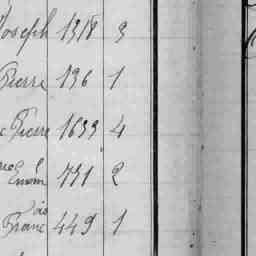 Joseph 1318 3
Pierre 136 1
Pierre 1633 4
Emm 731 2
Franc ois 449 1